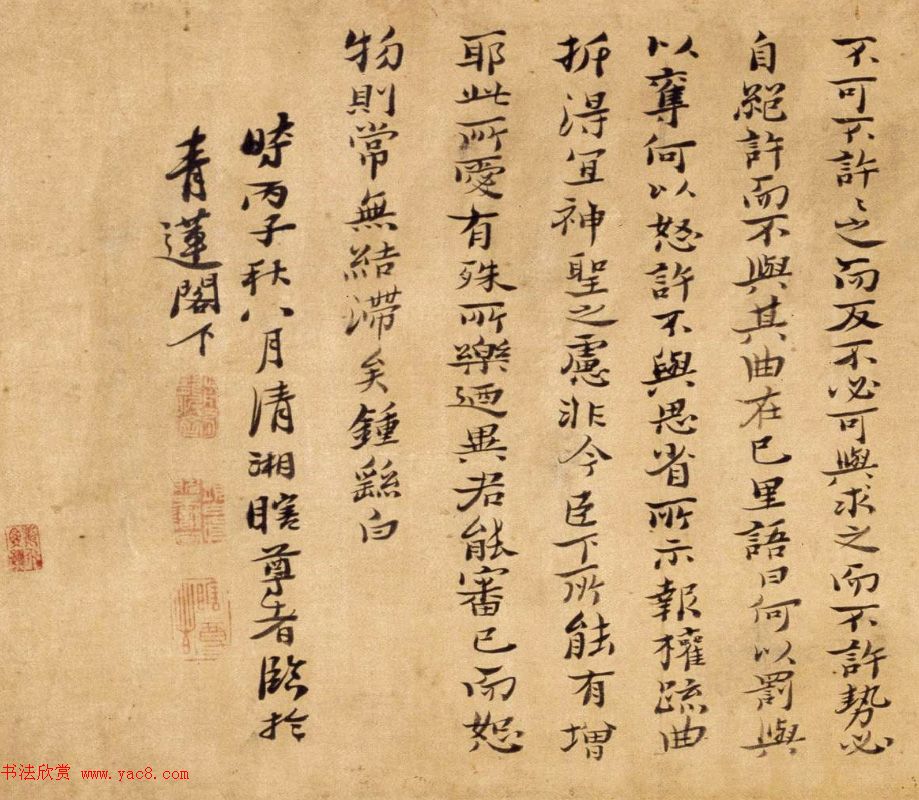 不可不許〻之而反不必可與求之而不許勢必
自絕許而不與其曲在己里語曰何以罰與
以奪何以怒許不與思省所示報權疏曲
折得宜神聖之慮非今臣下所能有增
耶此所愛有殊所樂迺異君能審己而恕
物則常無結滯矣鍾繇白
時丙子秋八月清湘瞎尊者臨於
青蓮閣下
书法欣赏 www.yac8.com